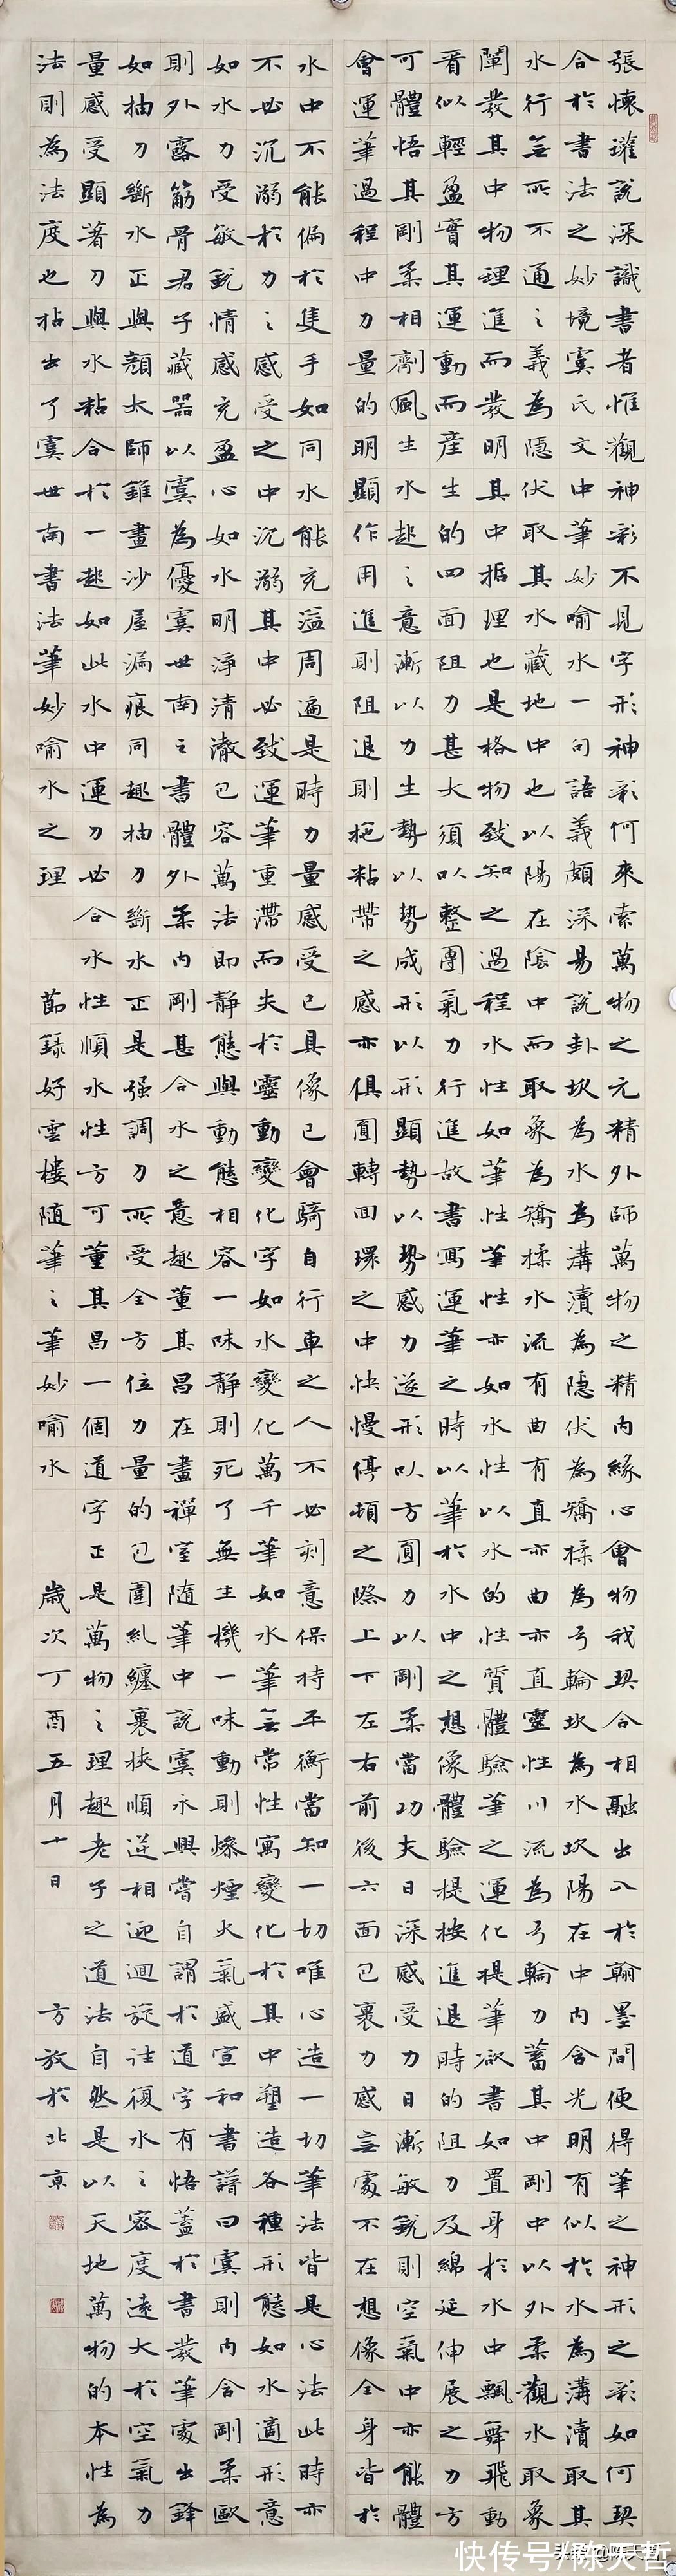 張懷瓘說深識書者惟觀神彩不見字形神彩何來索萬物之元精外師萬物之精內緣心會物我契合相融出入於翰墨間便得筆之神形之彩如何契
合於書法之妙境虞氏文中筆妙喻水一句語義頗深易說卦坎為水為溝瀆為隱伏為矯揉為弓輪坎為水坎陽在中內含光明有似於水為溝瀆取其
水行無所不通之義為隱伏取其水藏地中也以陽在陰中而取象為矯揉水流有曲有直亦曲亦直靈性川流為弓輪力蓄其中剛中以外柔觀水取象
闡發其中物理進而發明其中括理也是格物致知之過程水性如筆性筆性亦如水性以水的性質體驗筆之運化提筆欲書如置身於水中飄舞飛動
看似輕盈實其運動而產生的四面阻力甚大須以整團氣力行進故書寫運筆之時以筆於水中之想像體驗提按進退時的阻力及綿延伸展之力方
可體悟其剛柔相劑風生水起之意漸以力生勢以勢成形以形顯勢以勢感力遂形以方圓力以剛柔當功夫日深感受力日漸敏銳則空氣中亦能體
會運筆過程中力量的明顯作用進則阻退則拖粘帶之感亦俱圓轉回環之中快慢停頓之際上下左右前後六面包裹力感無處不在想像全身皆於
水中不能偏於隻手如同水能充溢周遍是時力量感受已具像已會騎自行車之人不必刻意保持平衡當知一切唯心造一切筆法皆是心法此時亦
不必沉溺於力之感受之中沉溺其中必致運筆重滯而失於靈動變化字如水變化萬千筆如水筆無常性寓變化於其中塑造各種形態如水適形意
如水力受敏銳情感充盈心如水明淨清澈包容萬法即靜態與動態相容一味靜則死了無生機一味動則慘煙火氣盛宣和書譜曰虞則內含剛柔歐
則外露筋骨君子藏器以虞為優虞世南之書體外柔內剛甚合水之意趣董其昌在畫禪室隨筆中說虞永興嘗自謂於道字有悟蓋於書發筆處出鋒
如抽刀斷水正與顏太師錐畫沙屋漏痕同趣抽刀斷水正是强調刀所受全方位力量的包圍糺纏裹挾順逆相迎迴旋往復水之密度遠大於空氣力
量感受顯著刀與水粘合於一起如此水中運刀必合水性順水性方可董其昌一個道字正是萬物之理趣老子之道道法自然是以天地萬物的本性為
法則為法度也拈出了虞世南書法筆妙喻水之理 節錄好雲樓隨筆之筆妙喻水 歲次丁酉五月十日 方放於北京
快传号/陈天哲